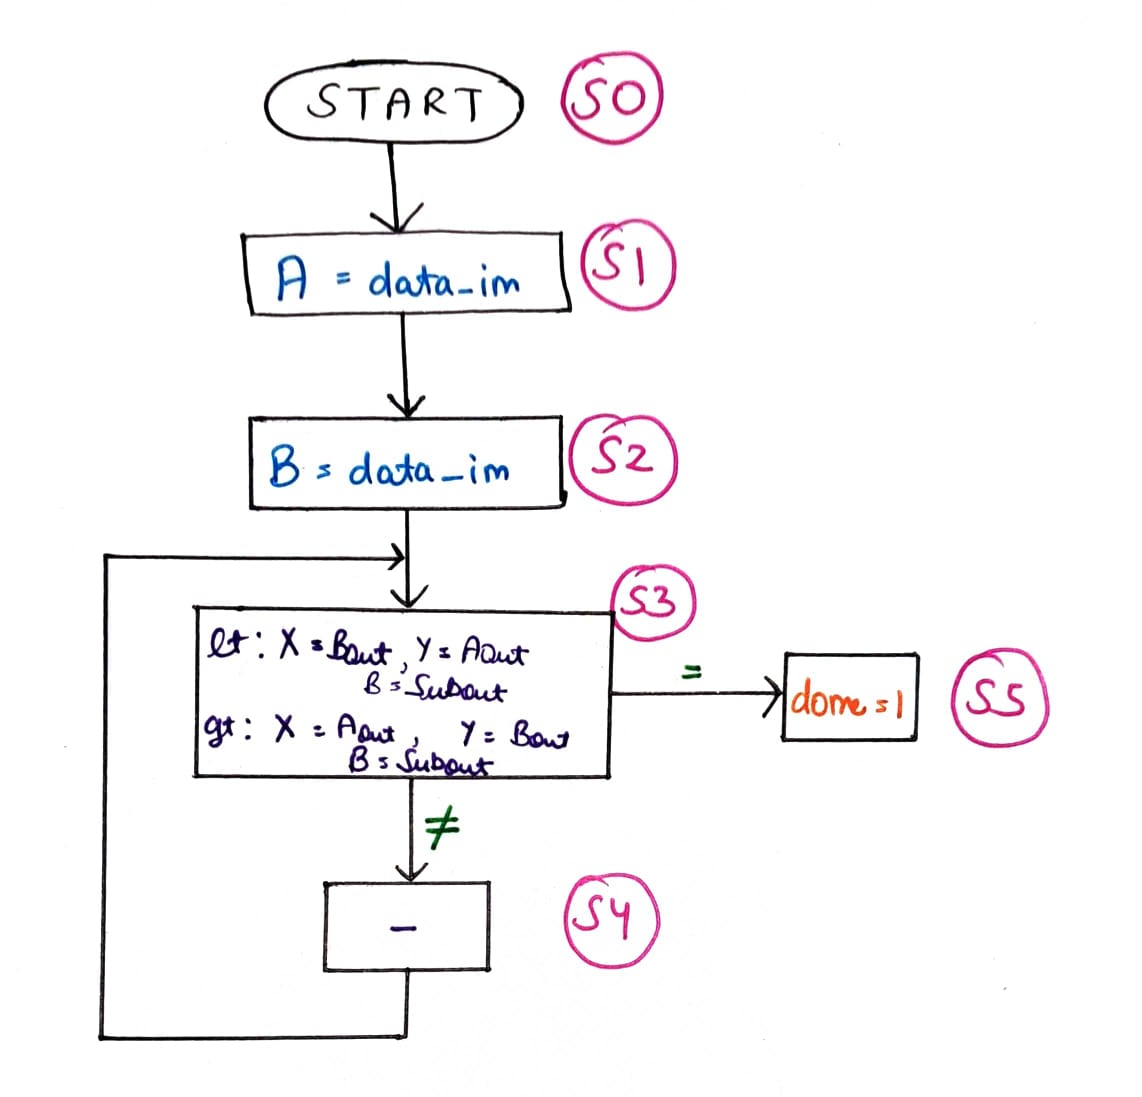 START S0
A = data_in S1
B = data_in S2
S3
lt: X = Bout, Y = Aout
B = Subout
=
done = 1 S5
gt: X = Aout, Y = Bout
B = Subout
≠
- S4